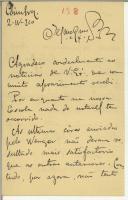 Coimbra,
158
Agradeço cordealmente as
noticias de V. Ex.ª, que com
muito aprazimento recebi.
Por enquanto na nossa
Escola nada de notavel tem
ocorrido.
As ultimas coisas enviadas
pelo Wenger não deram re-
sultado mais satisfatorio
que as outras anteriores. Con-
tudo, por agora, não tenho